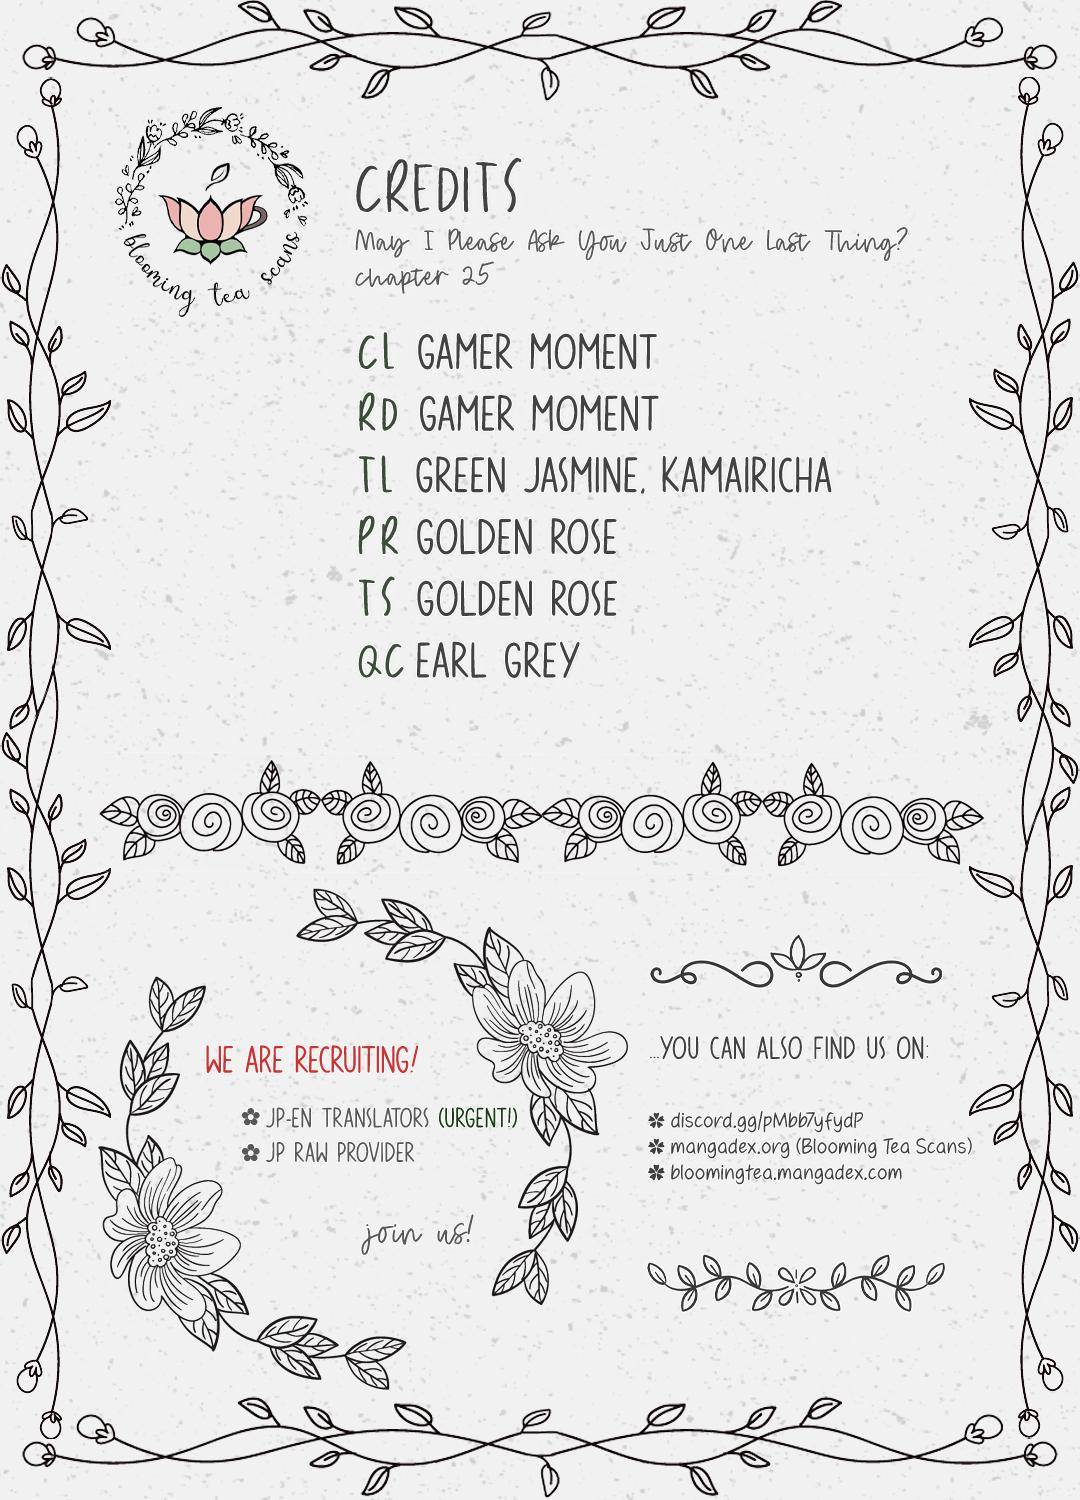 blooming tea scans
CREDITS
May I Please Ask You Just One Last Thing?
chapter 25
CL GAMER MOMENT
RD GAMER MOMENT
TL GREEN JASMINE, KAMAIRICHA
PR GOLDEN ROSE
TS GOLDEN ROSE
QC EARL GREY
WE ARE RECRUITING!
JP-EN TRANSLATORS (URGENT!)
JP RAW PROVIDER
join us!
...YOU CAN ALSO FIND US ON:
discord.gg/pMbb7yfydP
mangadex.org (Blooming Tea Scans)
bloomingtea.mangadex.com